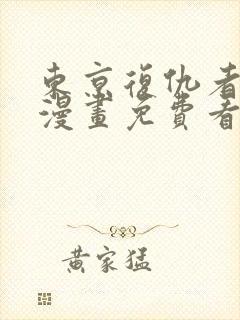 東京復仇者
漫畫免費看
黃家猛